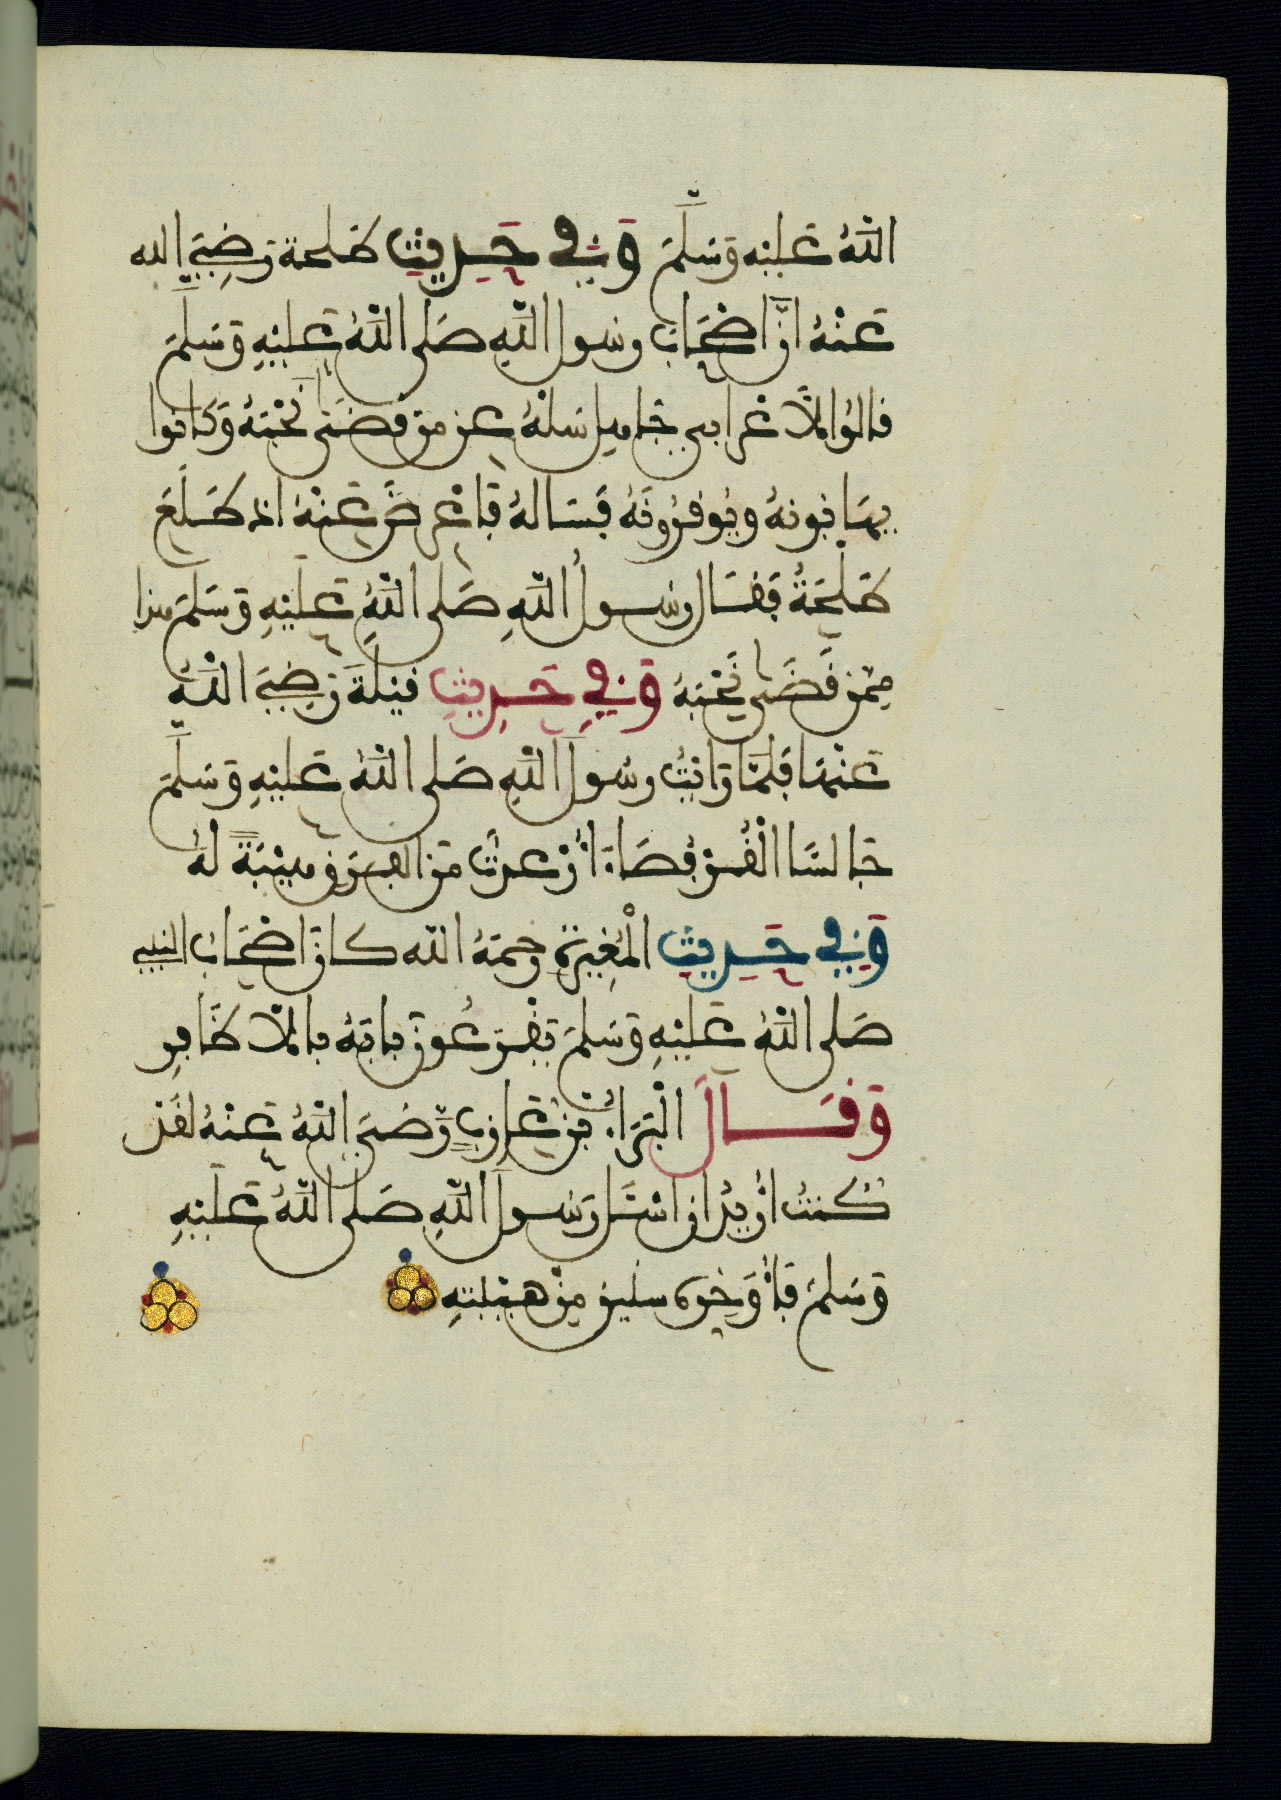 اللهُ عَلَيْهِ وَسَلَّمَ وَفِي حَدِيثِ طَلحة رَضِيَ الله
عَنْهُ أنَّ أصْحَابَ رسُول اللهِ صَلى اللهُ عَلَيْهِ وَسَلَّمَ
قالوُا لأعْرابي جَاهِل سَلْهُ عن مَن قَضَى نَحْبَهُ وَكانوا
يهَابونهُ ويُوقرُونَهُ فَسَالهُ فَاعْرضَ عَنْهُ اذ طَلَعَ
طَلحَةُ فَقَال رسُولُ اللهِ صَلى اللهُ عَلَيْهِ وَسَلَمَ هذا
مِمّن قَضَى نَحْبَهُ وَفِي حَدِيثِ قيْلَةَ رَضِيَ اللهُ
عَنْهَا فَلمَّا رَايْتُ رسُولَ اللهِ صَلى اللهُ عَلَيْهِ وَسَلَّمَ
جَالسًا القُرفُصَاءَ اُرْعدتُ مَن الفرَق هيْبَةً لهُ
وَفِي حَدِيثِ الْمُغِيرَةِ رحمَهُ الله كانَ أصْحَابُ النبي
صَلى اللهُ عَلَيْهِ وَسَلمَ يَقْرَعُونَ بابَهُ بالأظَافِرِ
وَقَالَ الْبَرَاءُ بْنُ عَازبٍ رّضيَ اللهُ عَنْهُ لقَدْ
كُنتُ اُرِيدُ ان اسْئَلَ رَسُولَ اللهِ صَلى اللهُ عَلَيْهِ
وَسَلمَ فَاُؤَخرهُ سنين مِنْ هيْبتهِ